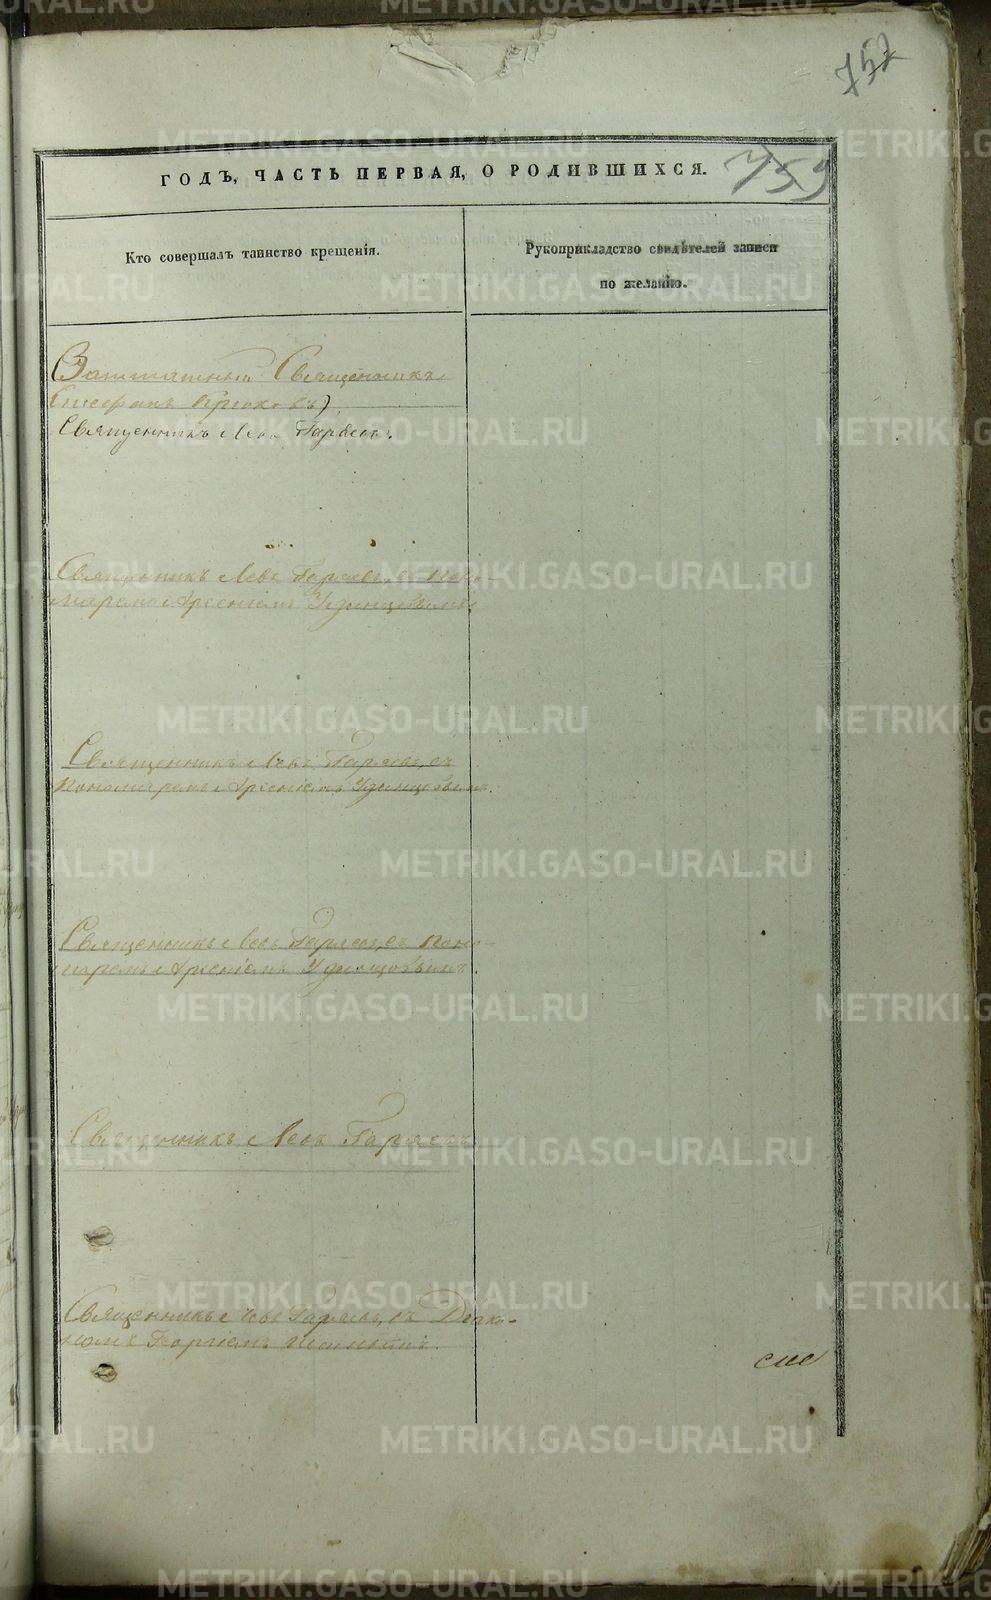 752
759
ГОДЪ, ЧАСТЬ ПЕРВАЯ, О РОДИВШИХСЯ.
Кто совершалъ таинство крещенія.
Рукоприкладство свидѣтелей записи
по желанію.
Заштатный Священникъ
Стефанъ Крюковъ)
Священникъ Левъ Гаряевъ.
Священникъ Левъ Гаряевъ, съ Поно-
маремъ Арсеніемъ Удинцовымъ.
Священникъ Левъ Гаряевъ, съ
Пономаремъ Арсеніемъ Удинцовымъ.
Священникъ Левъ Гаряевъ, съ Поно-
маремъ Арсеніемъ Удинцовымъ.
Священникъ Левъ Гаряевъ.
Священникъ Левъ Гаряевъ, съ Діако-
номъ Георгіемъ
METRIKI.GASO-URAL.RU